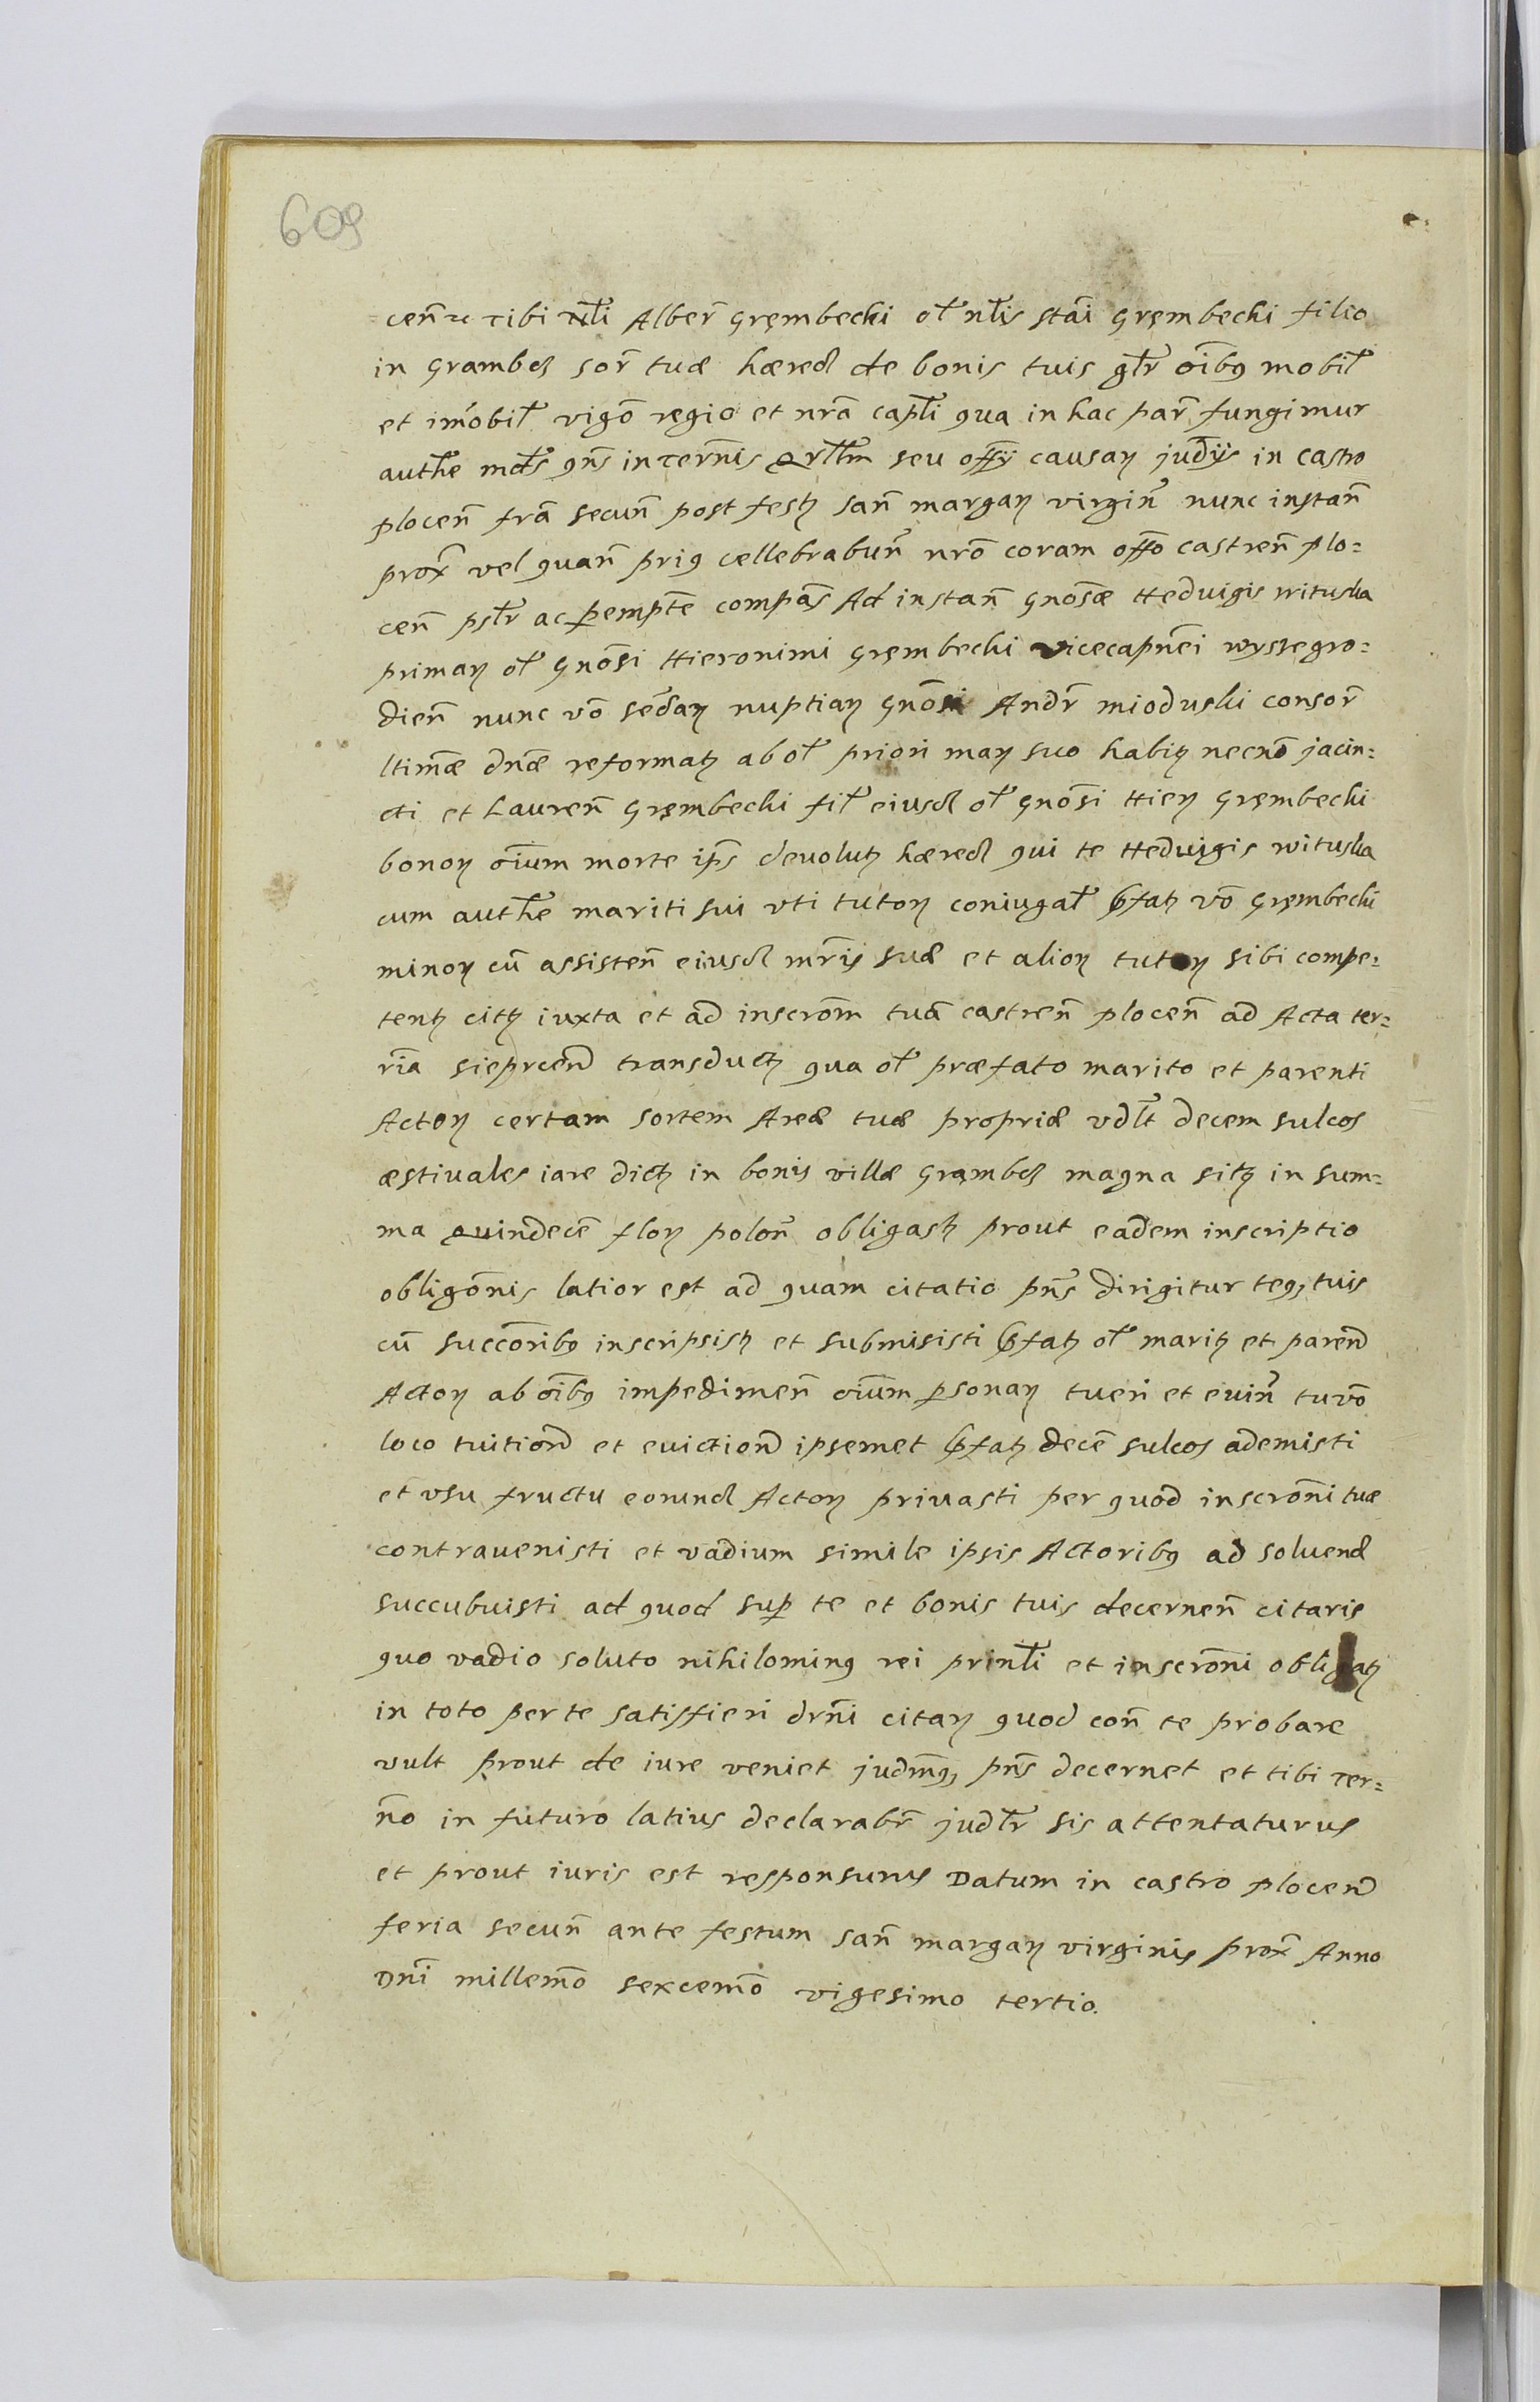 609
cen̄ etc tibi nl̃i Alber̄ Gręmbecki ol̃ nl̃is stāi Gręmbecki filio
in Grambcz sor̄ tuæ hæred de bonis tuis gl̃r oĩbus mobil̃
et im̄obil̃ vigō regio et nrā capl̃i qua in hac par̄ fungimur
auth̃e mdt̃s qñs in Term̄is Qrl̃lm seu offĩj causar̨ judĩjs in castro
plocen̄ frā secun̄ post festꝫ san̄ margar̨ virgin̄ nunc instan̄
prox̄ vel quan̄ prius cellebrabun̄ nrō coram offo castren̄ plo=
cen̄ psl̃r ac perempt̃e compās Ad instan̄ Gnosæ Heduigis Wituska
primar̨ ol̃ Gnōsi Hieronimi Gręmbecki vicecapnēi wyssegro=
dien̄ nunc vō sēdar̨ nuptiar̨ Gnōsi Andr̄ mioduski consor̄
ltim̄æ dn̄æ reformatꝫ ab ol̃ priori mar̨ suo habitꝫ necnō jacin=
cti et Lauren̄ Gręmbecki fil̃ eiusd ol̃ Gnōsi Hier̨ Gręmbecki
bonor̨ oīum morte ips̄ devolutꝫ hæred qui te Heduigis Wituska
cum auth̃e mariti sui vti tutor̨ coniugal̃ præfatꝫ vō Gręmbecki
minor̨ cū assisten̄ eiusd mr̄is suæ et alior̨ tutor̨ sibi compe=
tentꝫ citꝫ iuxta et ad inscrōm tuā castren̄ plocen̄ ad Acta ter=
r̄ia sieprcen̄ transductꝫ qua ol̃ præfato marito et parenti
Actor̨ certam sortem Areæ tuæ propriæ vdl̃t decem sulcos
æstiuales iare dictꝫ in bonis villæ Grambcz magna sitꝫ in sum=
ma Quindecē flor̨ polon̄ obligastꝫ prout eadem inscriptio
obligōnis latior est ad quam citatio pn̄s dirigitur teque tuis
cū succōribus inscripsistꝫ et submisisti præfatꝫ ol̃ maritꝫ et paren̄
Actor̨ ab oĩbus impedimen̄ oīum personar̨ tueri et euin̄ tu vō
loco tuition̄ et euiction̄ ipsemet præfatꝫ decē sulcos ademisti
et vsu fructu eorund Actor̨ priuasti per quod inscrōni tuæ
contrauenisti et vadium simile ipsis Actoribus ad soluend
succubuisti ad quod sup te et bonis tuis decernen̄ citaris
quo vadio soluto nihilominus rei prinl̃i et inscrōni obligatꝫ
in toto per te satisfieri drn̄i citar̨ quod con̄ te probare
vult prout de iure veniet judmque pn̄s decernet et tibi ter=
n̄o in futuro latius declarabr̄ judl̃r sis attentaturus
et prout iuris est responsurus Datum in castro plocen̄
feria secun̄ ante festum san̄ margar̨ virginis prox̄ Anno
Dn̄i millem̄o sexcem̄o vigesimo tertio.